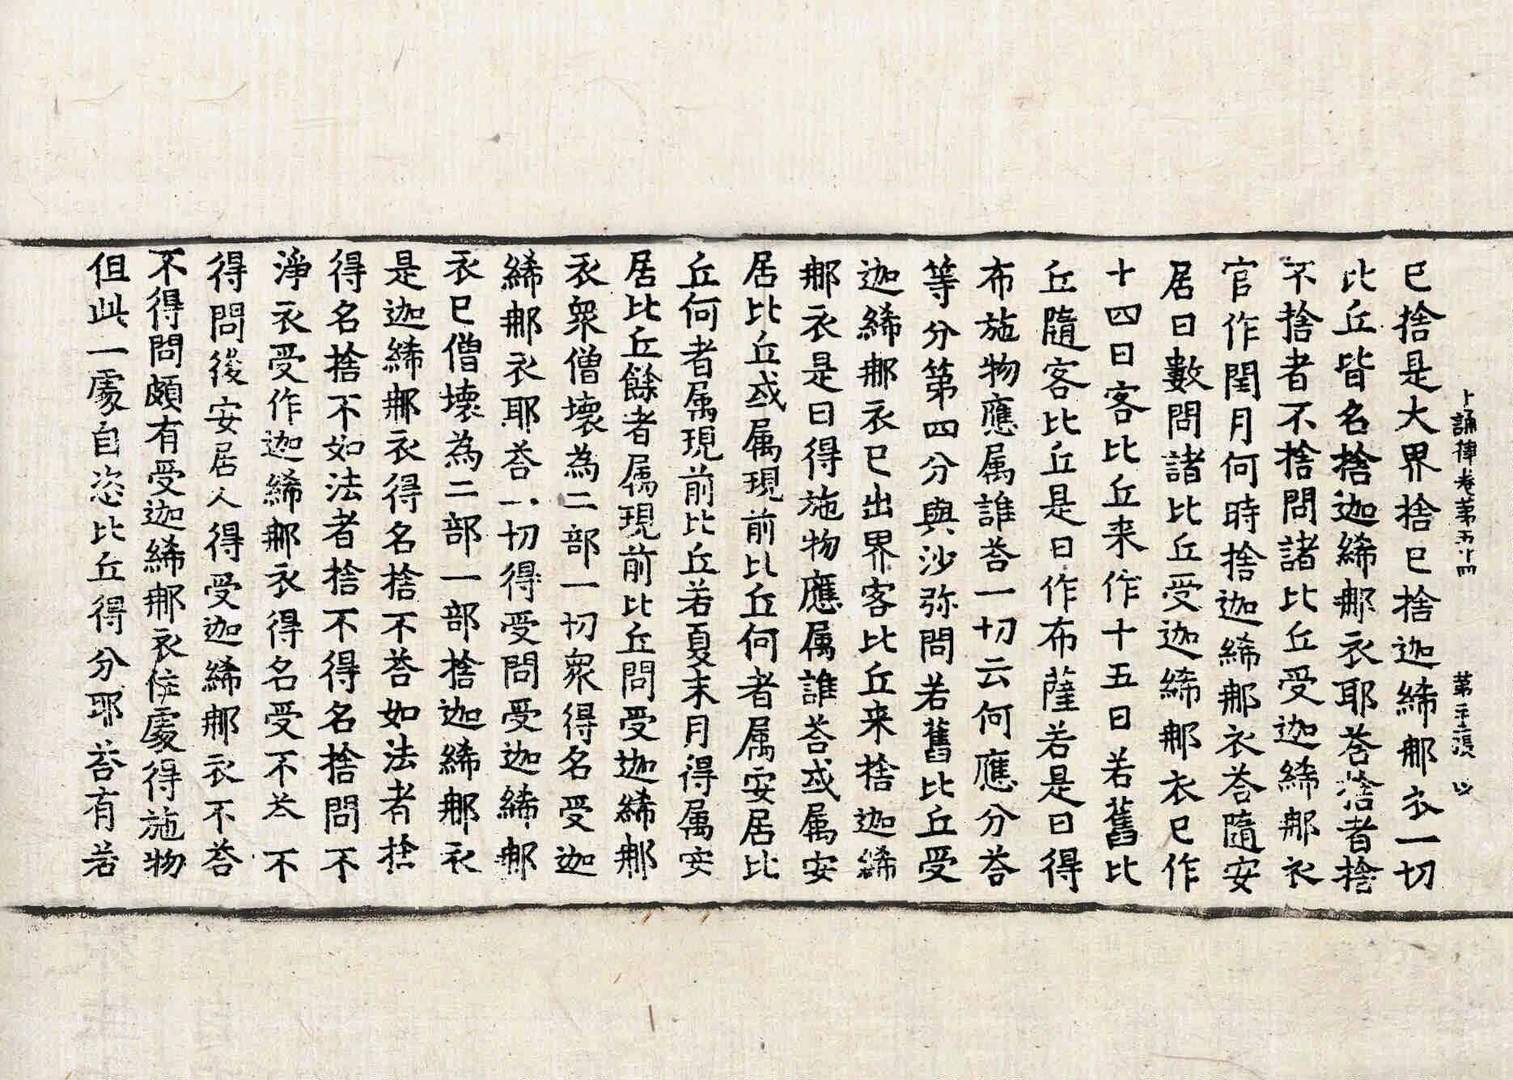 已捨是大界捨已捨迦絺那衣一切
十誦律卷第五十四 第二十二張 㓙
比丘皆名捨迦絺那衣耶荅捨者捨
不捨者不捨問諸比丘受迦絺那衣
官作閏月何時捨迦絺那衣荅隨安
居日數問諸比丘受迦絺那衣已作
十四日客比丘来作十五日若舊比
丘隨客比丘是日作布薩若是日得
布施物應属誰荅一切云何應分荅
等分第四分與沙弥問若舊比丘受
迦絺那衣已出界客比丘来捨迦絺
那衣是日得施物應属誰荅或属安
居比丘或属現前比丘何者属安居比
丘何者属現前比丘若夏末月得属安
居比丘餘者属現前比丘問受迦絺那
衣衆僧壞為二部一切衆得名受迦
絺那衣耶荅一切得受問受迦絺那
衣已僧壞為二部一部捨迦絺那衣
是迦絺那衣得名捨不荅如法者捨
得名捨不如法者捨不得名捨問不
淨衣受作迦絺那衣得名受不荅不
得問後安居人得受迦絺那衣不荅
不得問頗有受迦絺那衣住處得施物
但此一處自恣比丘得分耶荅有若